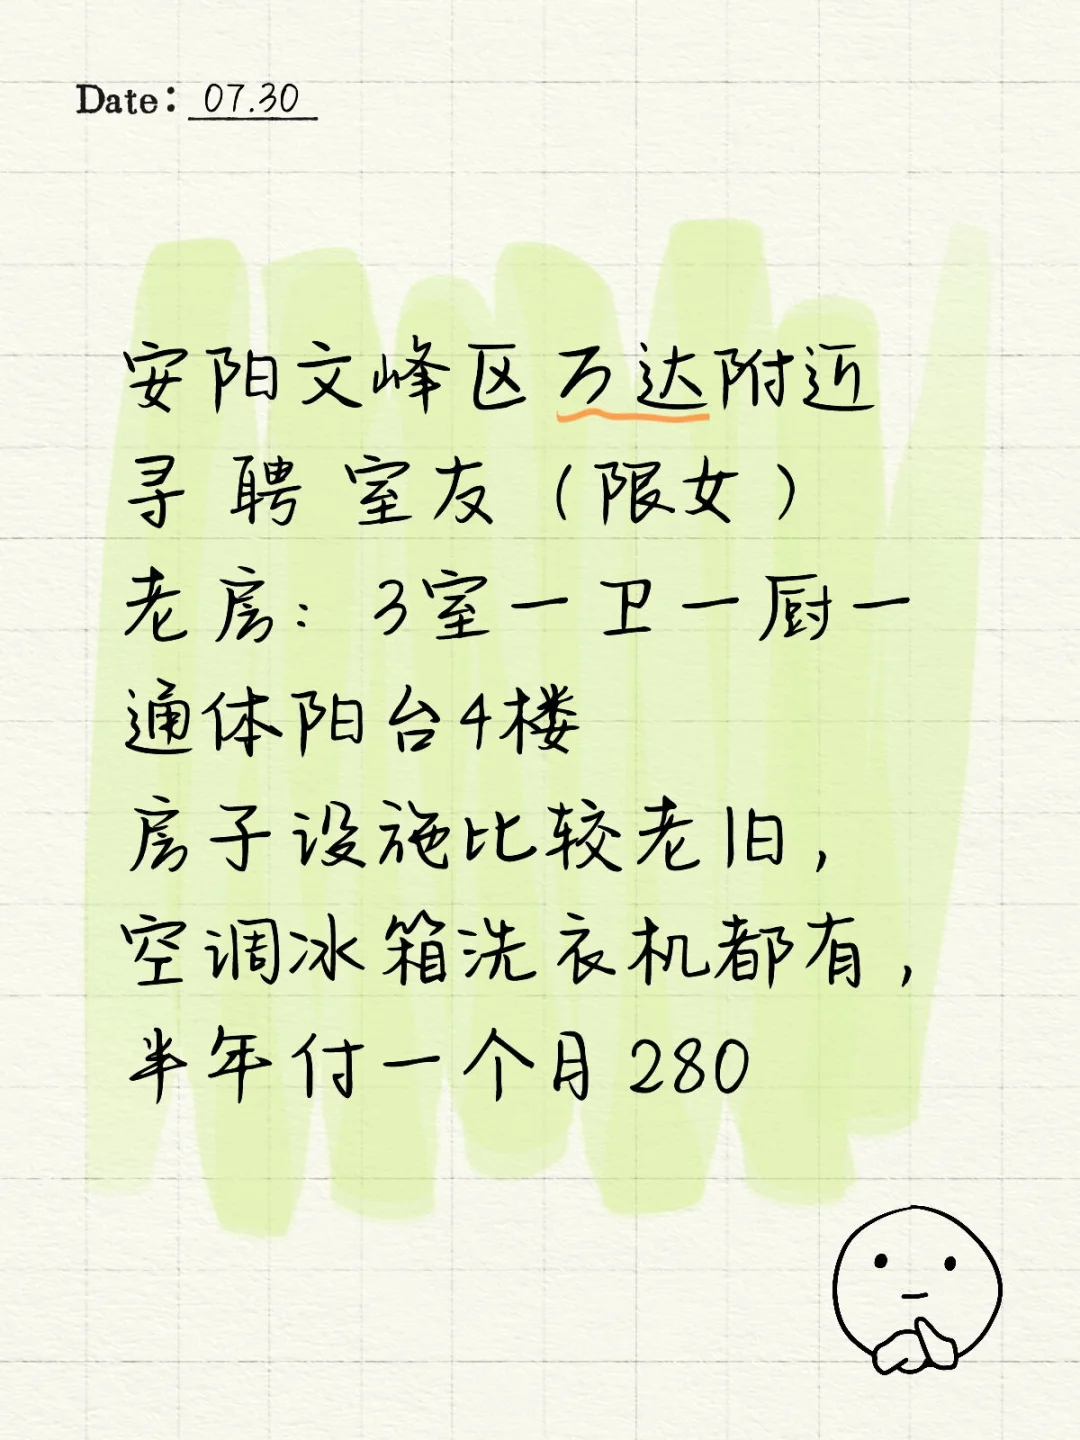 Date: 07.30
安阳文峰区万达附近
寻聘室友（限女）
老房：3室一卫一厨一
通体阳台4楼
房子设施比较老旧，
空调冰箱洗衣机都有，
半年付一个月280